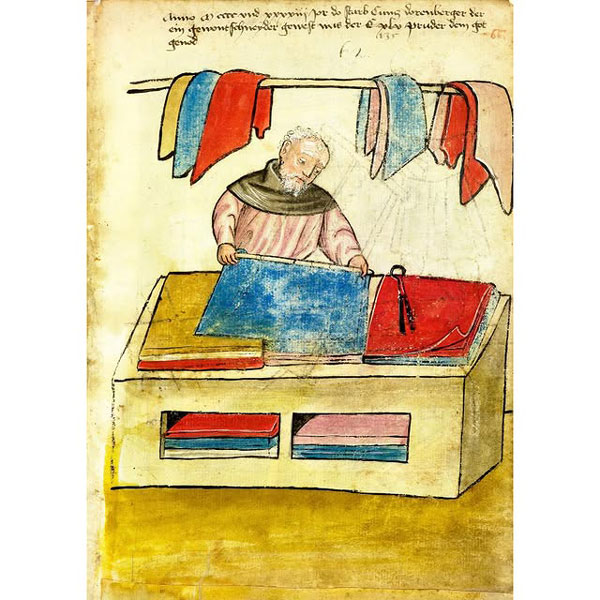 Anno M cccc und xxxxiiij jor do starb Cuncz dorenberger der
ein gewontschneyder gewest was der C xlv pruder dem got
genod
135
66